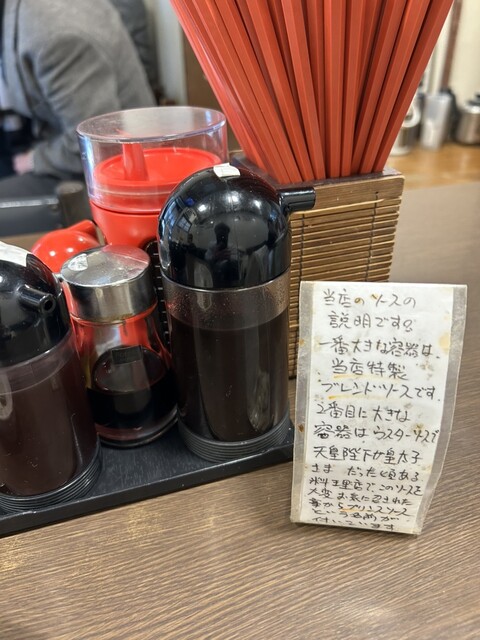 当店のソースの
説明です。
一番大きな容器は、
当店特製
ブレンドソースです。
2番目に大きな
容器はウスターソースで
天皇陛下が皇太子
さま だった頃ある
料理店で、このソースを
大変 お気に召された
事からプリンスソース
という名前が
付いています